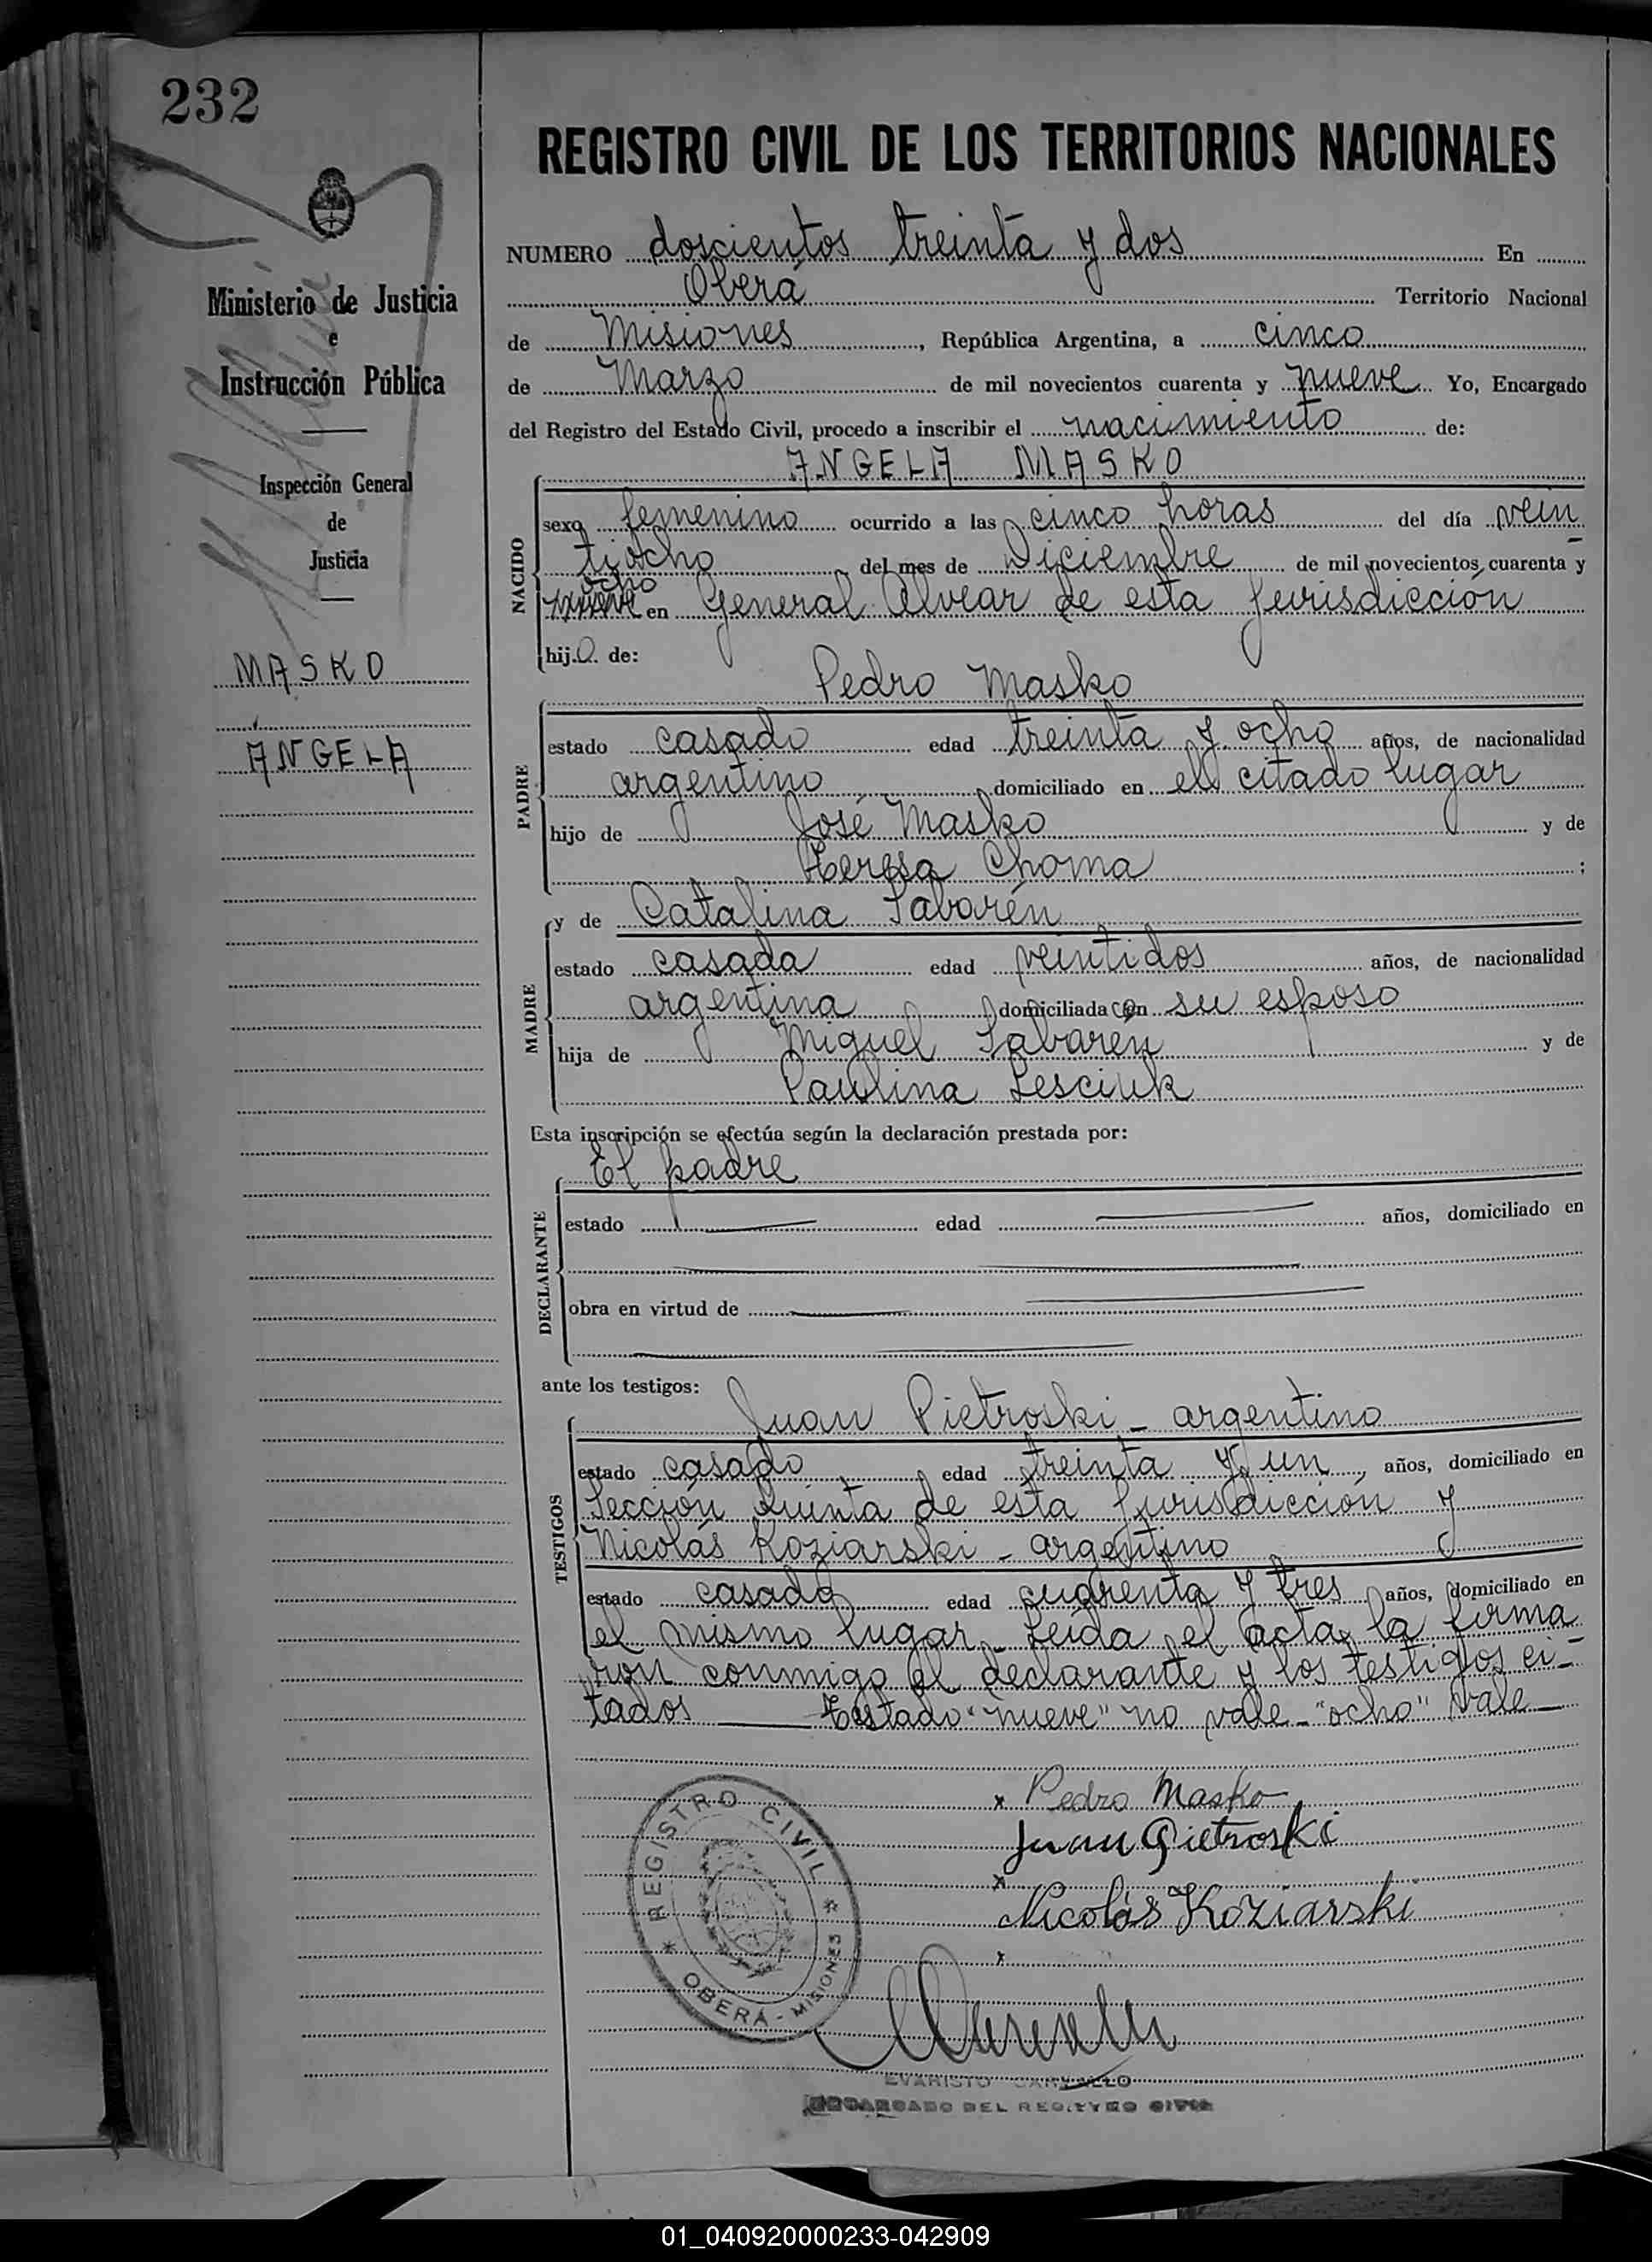 232
REGISTRO CIVIL DE LOS TERRITORIOS NACIONALES
Ministerio de Justicia
e
Instrucción Pública
Inspección General
de
Justicia
MASKO
ANGELA
NUMERO doscientos treinta y dos En
Oberá Territorio Nacional
de Misiones, República Argentina, a cinco
de Marzo de mil novecientos cuarenta y nueve Yo, Encargado
del Registro del Estado Civil, procedo a inscribir el nacimiento de:
ANGELA MASKO
NACIDO
sexo femenino ocurrido a las cinco horas del día vein
tiocho del mes de Diciembre de mil novecientos cuarenta y
ocho
nueve en General Alvear de esta jurisdicción
hija de:
Pedro Masko
PADRE
estado casado edad treinta y ocho años, de nacionalidad
argentino domiciliado en el citado lugar
hijo de José Masko y de
Teresa Choma;
MADRE
y de Catalina Sabarén
estado casada edad veintidos años, de nacionalidad
argentina domiciliada con su esposo
hija de Miguel Sabarén y de
Paulina Lesciuk
Esta inscripción se efectúa según la declaración prestada por:
El padre
DECLARANTE
estado edad años, domiciliado en
obra en virtud de
ante los testigos:
TESTIGOS
Juan Pietroski - argentino
estado casado edad treinta y un, años, domiciliado en
Sección Quinta de esta jurisdicción y
Nicolás Koziarski - argentino
estado casado edad cuarenta y tres años, domiciliado en
el mismo lugar - Leída el acta, la firma
ron conmigo el declarante y los testigos ci-
tados — Testado "nueve" no vale - "ocho" vale —
x Pedro Masko
Juan Pietroski
x
Nicolás Koziarski
x
REGISTRO CIVIL
OBERÁ - MISIONES
EVARISTO CARVALLO
ENCARGADO DEL REGISTRO CIVIL
01_040920000233-042909